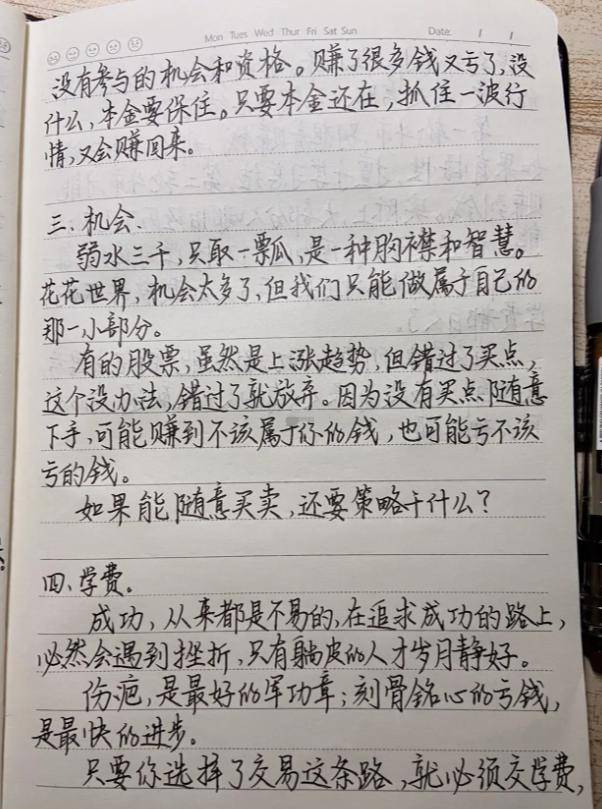 Mon Tues Wed Thur Fri Sat Sun Date: / /
没有参与的机会和资格。赚了很多钱又亏了,没
什么,本金要保住。只要本金还在,抓住一波行
情,又会赚回来。
三、机会.
弱水三千,只取一瓢瓜,是一种胸襟和智慧。
花花世界,机会太多了,但我们只能做属于自己的
那一小部分。
有的股票,虽然是上涨趋势,但错过了买点,
这个没办法,错过了就放弃。因为没有买点随意
下手,可能赚到不该属于你的钱,也可能亏不该
亏的钱。
如果能随意买卖,还要策略干什么?
四、学费。
成功,从来都是不易的,在追求成功的路上,
必然会遇到挫折,只有躺皮的人才岁月静好。
伤疤,是最好的军功章;刻骨铭心的亏钱,
是最快的进步。
只要你选择了交易这条路,就必须交学费,